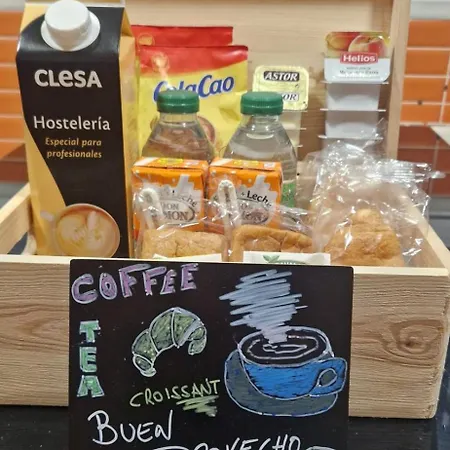 CLESA
Hostelería
Especial para
profesionales
ColaCao
ASTOR
Helios
Leche
Leche
COFFEE
TEA
CROISSANT
BUEN
PROVECHO